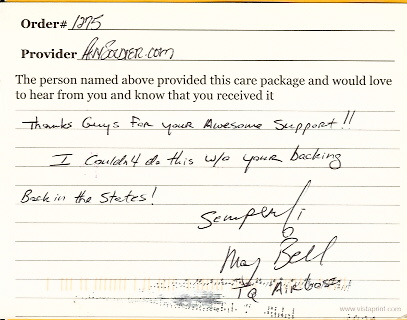 Order# 1275
Provider AnSoldier.com
The person named above provided this care package and would love
to hear from you and know that you received it
Thanks Guys for your Awesome Support!!
I Couldn't do this w/o your backing
Back in the States!
Semper Fi
Maj Bell
TQ AIRbase
www.vistaprint.com